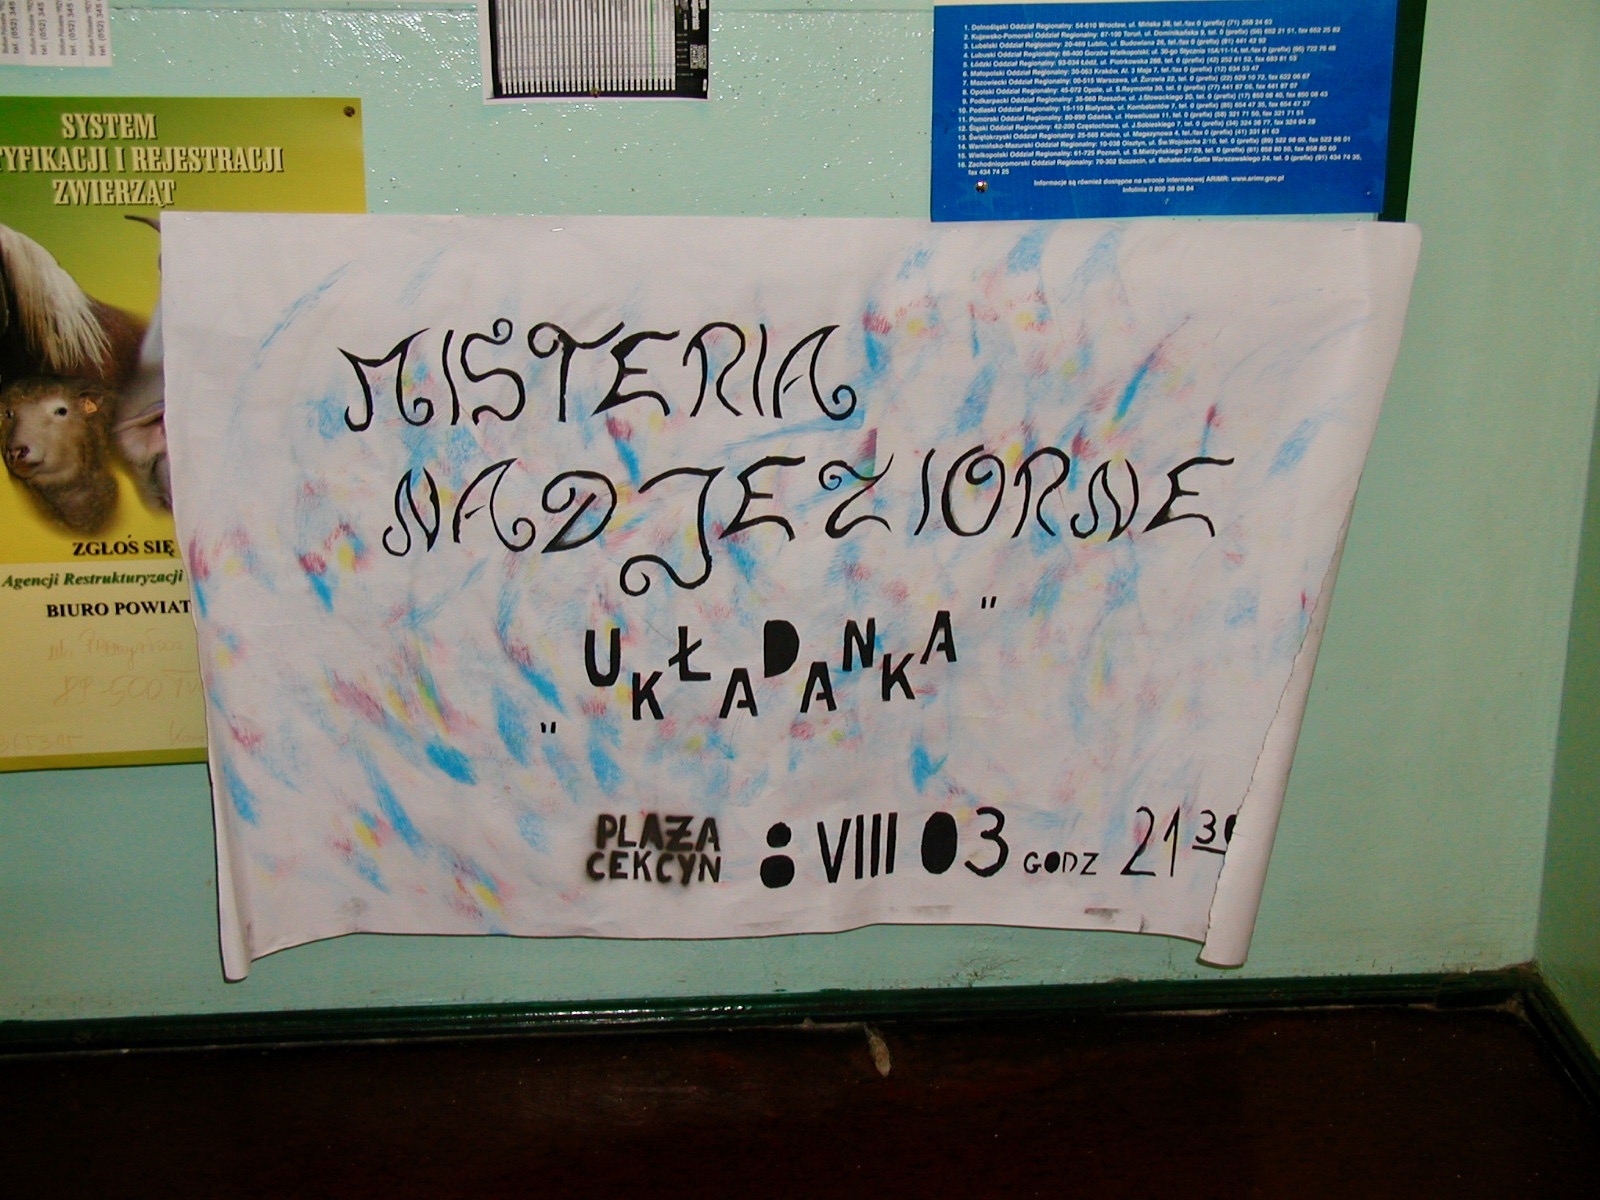 SYSTEM
TYFIKACJI I REJESTRACJI
ZWIERZĄT
ZGŁOŚ SIĘ
Agencji Restrukturyzacji
BIURO POWIAT
89-500
tel. (052) 345
1. Dolnośląski Oddział Regionalny: 54-610 Wrocław, ul. Mińska 38, tel./fax 0 (prefix) (71) 358 24 63
2. Kujawsko-Pomorski Oddział Regionalny: 87-100 Toruń, ul. Dominikańska 9, tel. 0 (prefix) (56)
3. Lubelski Oddział Regionalny: 20-469 Lublin, ul. Budowlana 26, tel./fax 0 (prefix) (81)
4. Lubuski Oddział Regionalny: 66-400 Gorzów Wielkopolski, ul. 30-go Stycznia
5. Łódzki Oddział Regionalny: 93-034 Łódź, ul. Piotrkowska
6. Małopolski Oddział Regionalny: 30-063 Kraków, Al. 3 Maja 7, tel./fax 0 (prefix) (12) 634 33 47
7. Mazowiecki Oddział Regionalny: 00-515 Warszawa, ul. Żurawia 22, tel. 0 (prefix) (22) 629 10 72, fax 622 06 67
8. Opolski Oddział Regionalny: 45-072 Opole, ul. S.Reymonta 30, tel. 0 (prefix) (77) 441 87 05, fax 441 87 07
9. Podkarpacki Oddział Regionalny: Rzeszów, ul. J.Słowackiego
10. Podlaski Oddział Regionalny: Białystok, ul. Kombatantów 7, tel. 0 (prefix) (85) 654 47 35, fax 654 47 37
11. Pomorski Oddział Regionalny: Gdańsk, ul. Heweliusza 11, tel. 0 (prefix) (58) 321 71 50, fax 321 71 51
12. Śląski Oddział Regionalny: 42-200 Częstochowa, ul. J.Sobieskiego 7, tel. 0 (prefix) (34)
13. Świętokrzyski Oddział Regionalny: Kielce, ul. Magazynowa 4, tel./fax 0 (prefix) (41) 331 61 63
14. Warmińsko-Mazurski Oddział Regionalny: Olsztyn, ul. Św.Wojciecha
15. Wielkopolski Oddział Regionalny: 61-725 Poznań, ul. S.Mielżyńskiego 27/29, tel. 0 (prefix) (61)
16. Zachodniopomorski Oddział Regionalny: 70-302 Szczecin, ul. Bohaterów Getta Warszawskiego 24, tel. 0 (prefix) (91) 434 74 35,
fax 434 74 25
Informacje są również dostępne na stronie internetowej ARiMR: www.arimr.gov.pl
Infolinia 0 800 38 00 84
MISTERIA
NADJEZIORNE
"UKŁADANKA"
PLAŻA
CEKCYN 8 VIII 03 GODZ 21 30